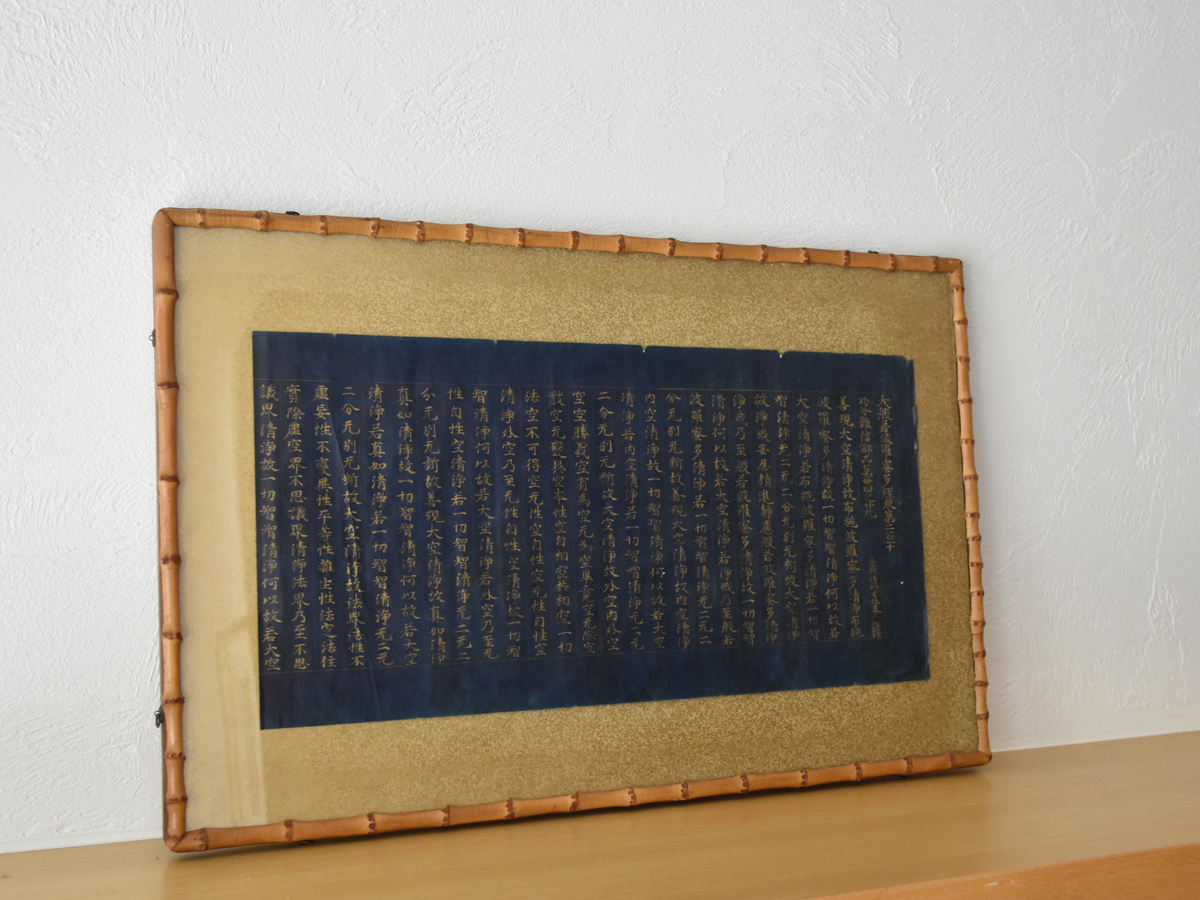 大般若波羅蜜多經卷第二百十
初分難信解品第卅四之廿九
善現大空清淨故布施波羅蜜多清淨布施
波羅蜜多清淨故一切智智清淨何以故若
大空清淨若布施波羅蜜多清淨若一切智
智清淨无二无二分无別无斷故大空清淨
故淨戒安忍精進靜慮般若波羅蜜多清淨
淨戒乃至般若波羅蜜多清淨故一切智智
清淨何以故若大空清淨若淨戒乃至般若
波羅蜜多清淨若一切智智清淨无二无二
分无別无斷故善現大空清淨故內空清淨
內空清淨故一切智智清淨何以故若大空
清淨若內空清淨若一切智智清淨无二无
二分无別无斷故大空清淨故外空內外空
空空勝義空有為空无為空畢竟空无際空
散空无變異空本性空自相空共相空一切
法空不可得空无性空自性空无性自性空
清淨外空乃至无性自性空清淨故一切智
智清淨何以故若大空清淨若外空乃至无
性自性空清淨若一切智智清淨无二无二
分无別无斷故善現大空清淨故真如清淨
真如清淨故一切智智清淨何以故若大空
清淨若真如清淨若一切智智清淨无二无
二分无別无斷故大空清淨故法界法性不
虛妄性不變異性平等性離生性法定法住
實際虛空界不思議界清淨法界乃至不思
議界清淨故一切智智清淨何以故若大空